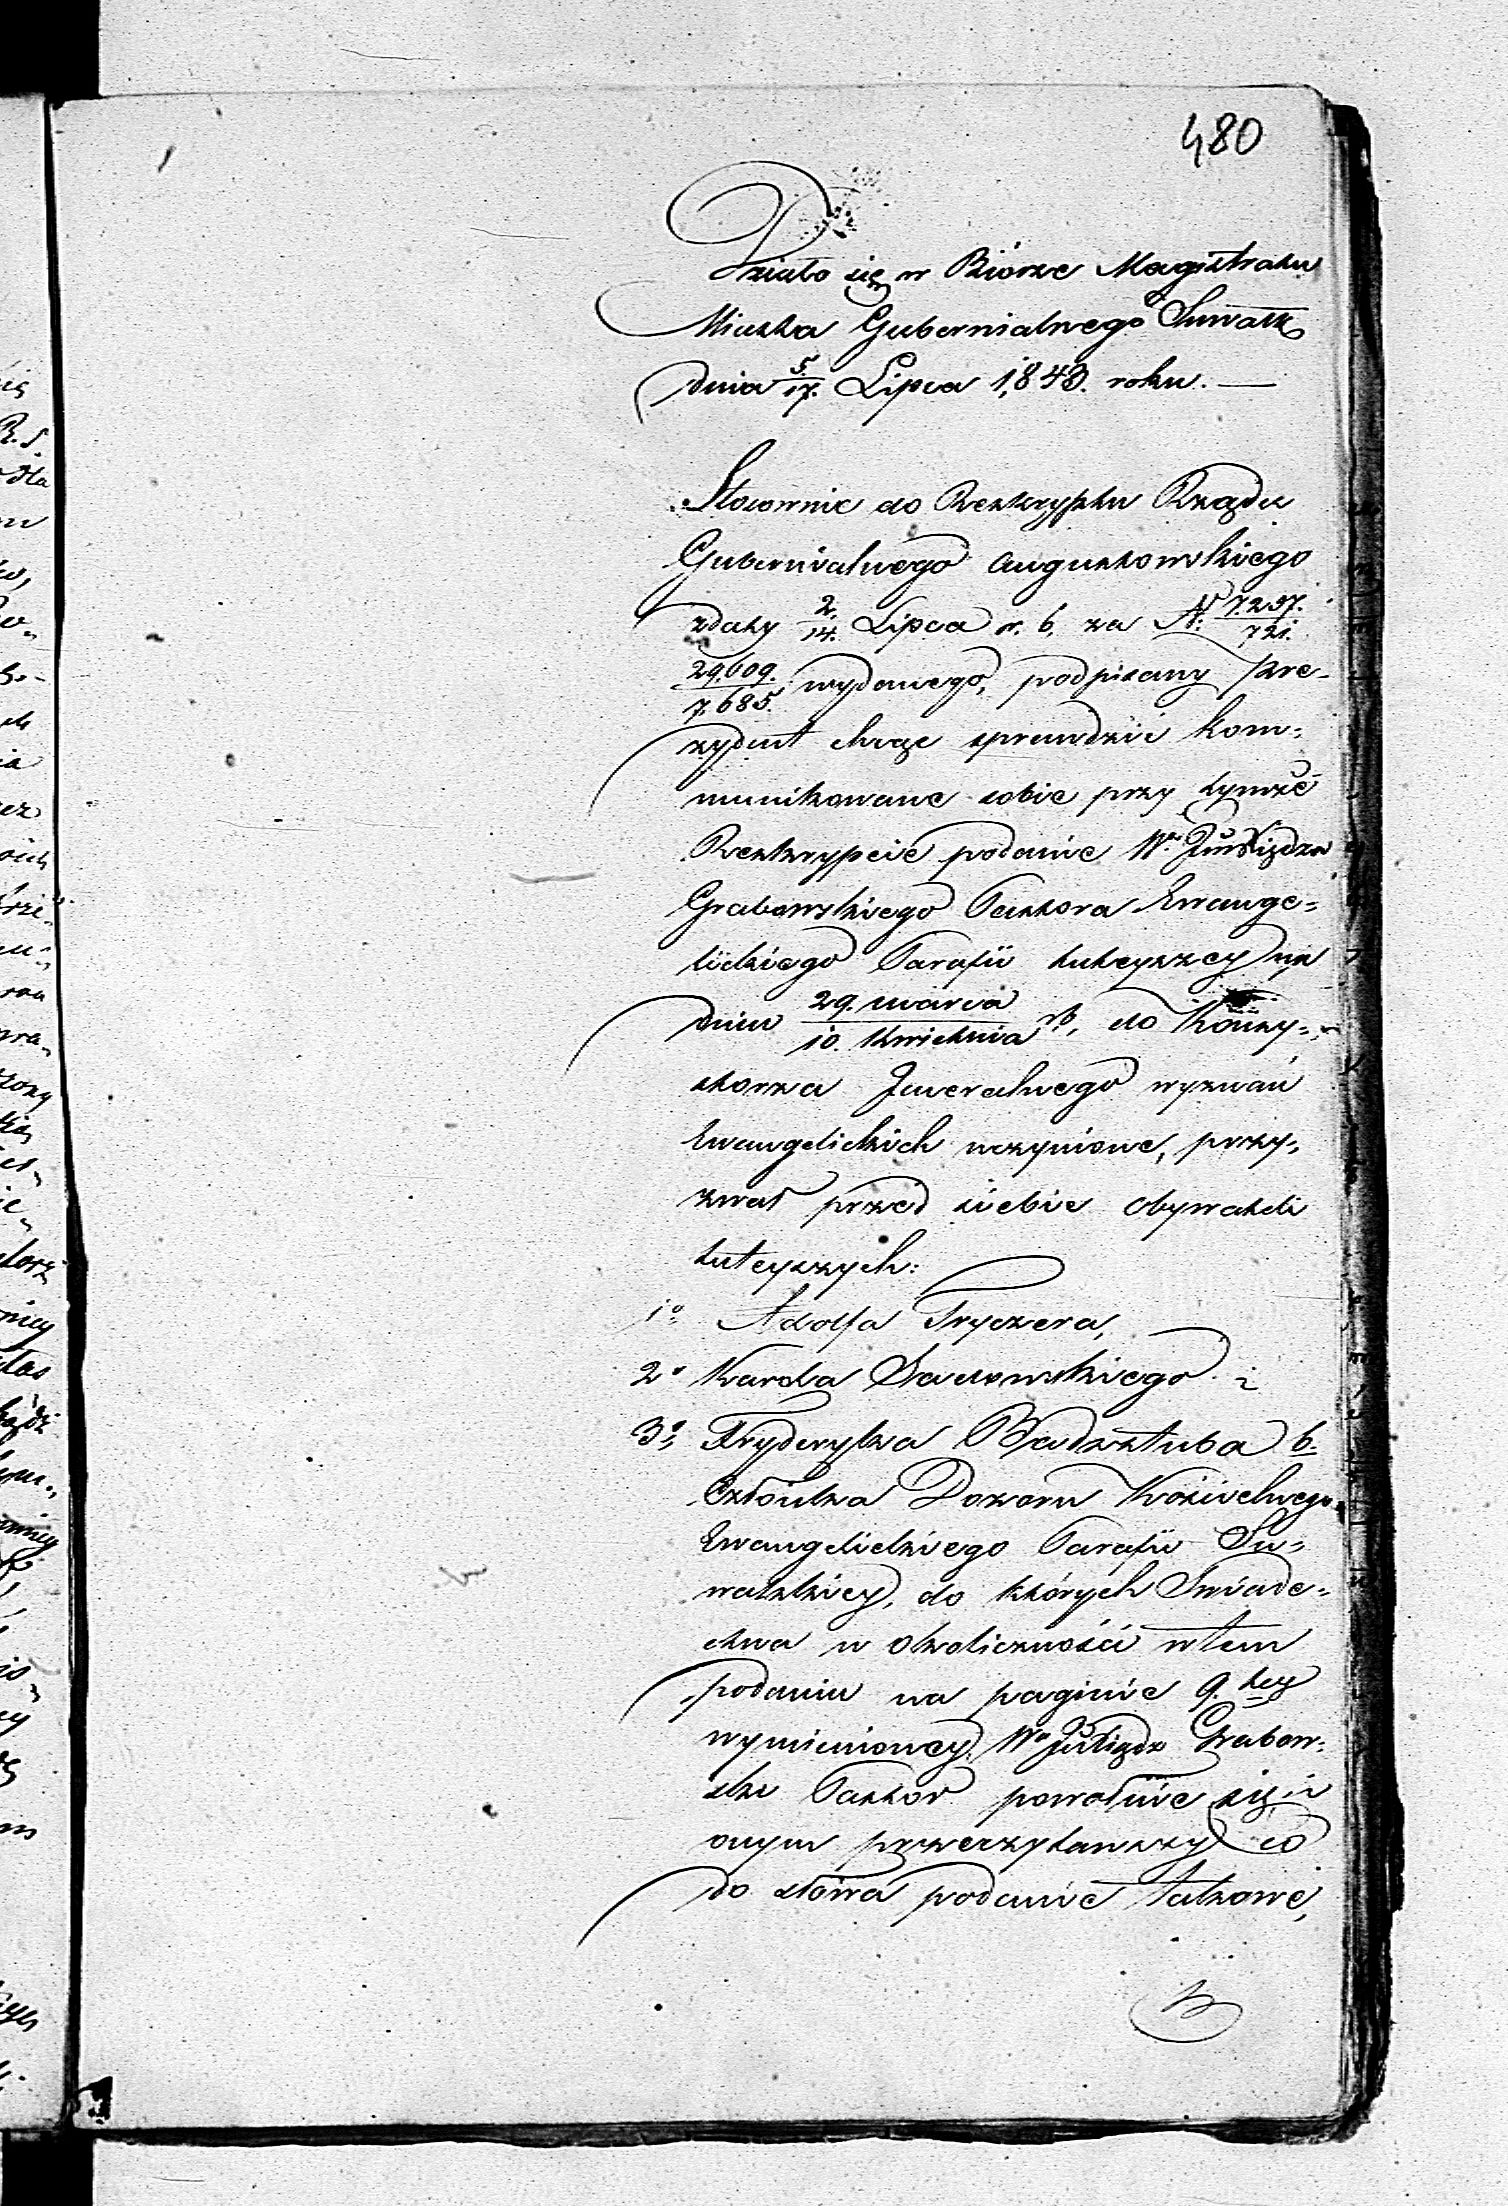 480
Działo się w Biórze Magistratu
Miasta Gubernialnego Suwałk
dnia 5/17. Lipca 1843. roku. —
Stosownie do Reskryptu Rządu
Gubernialnego Augustowskiego
zdaty 2/14. Lipca r. b. za N: 7.297./721.
29.609./7.685. wydanego, podpisany Pre-
zydent chcąc sprawdzić kom=
munikowane sobie przy tymże
Reskrypcie podanie Wo Jmć Xiędza
Grabowskiego Pastora Ewange=
lickiego Parafii tuteyszey w
dniu 29. marca/10. Kwietnia rb, do Konsy=
storza Jeneralnego wyznań
Ewangelickich uczynione, przy=
zwał przed siebie obywateli
tuteyszych:
1o Adolfa Fryczera,
2o Karola Sadowskiego i
3o Fryderyka Badsztuba b.
Członka Dozoru Kościelnego
Ewangelickiego Parafii Su=
walskiey, do których Świade=
ctwa w okoliczności wtem
podaniu na paginie 9. tey
wymienioney, Wo Xiądz Grabow=
ski Pastor powołuie się i
onym przeczytawszy co
do słowa podanie takowe,